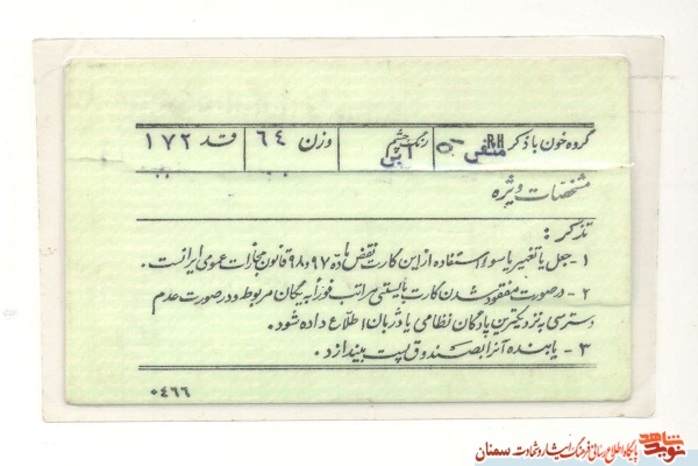 گروه خون با ذکر RH منفی O- رنگ چشم آبی وزن ۶۴ قد ۱۷۲
مشخصات ویژه
تذکر :
۱- جعل یا تغییر یا سوء استفاده از این کارت نقض ماده ۹۷ و ۹۸ قانون مجازات عمومی ایرانست .
۲- در صورت مفقود شدن کارت بایستی مراتب فوراً به یگان مربوط و در صورت عدم
دسترسی به نزدیکترین پادگان نظامی یا دژبان اطلاع داده شود .
۳- یابنده آنرا بصندوق پست بیندازد .
۰۴۶۶
نوید شاهد
پایگاه اطلاع رسانی فرهنگ ایثار و شهادت سمنان